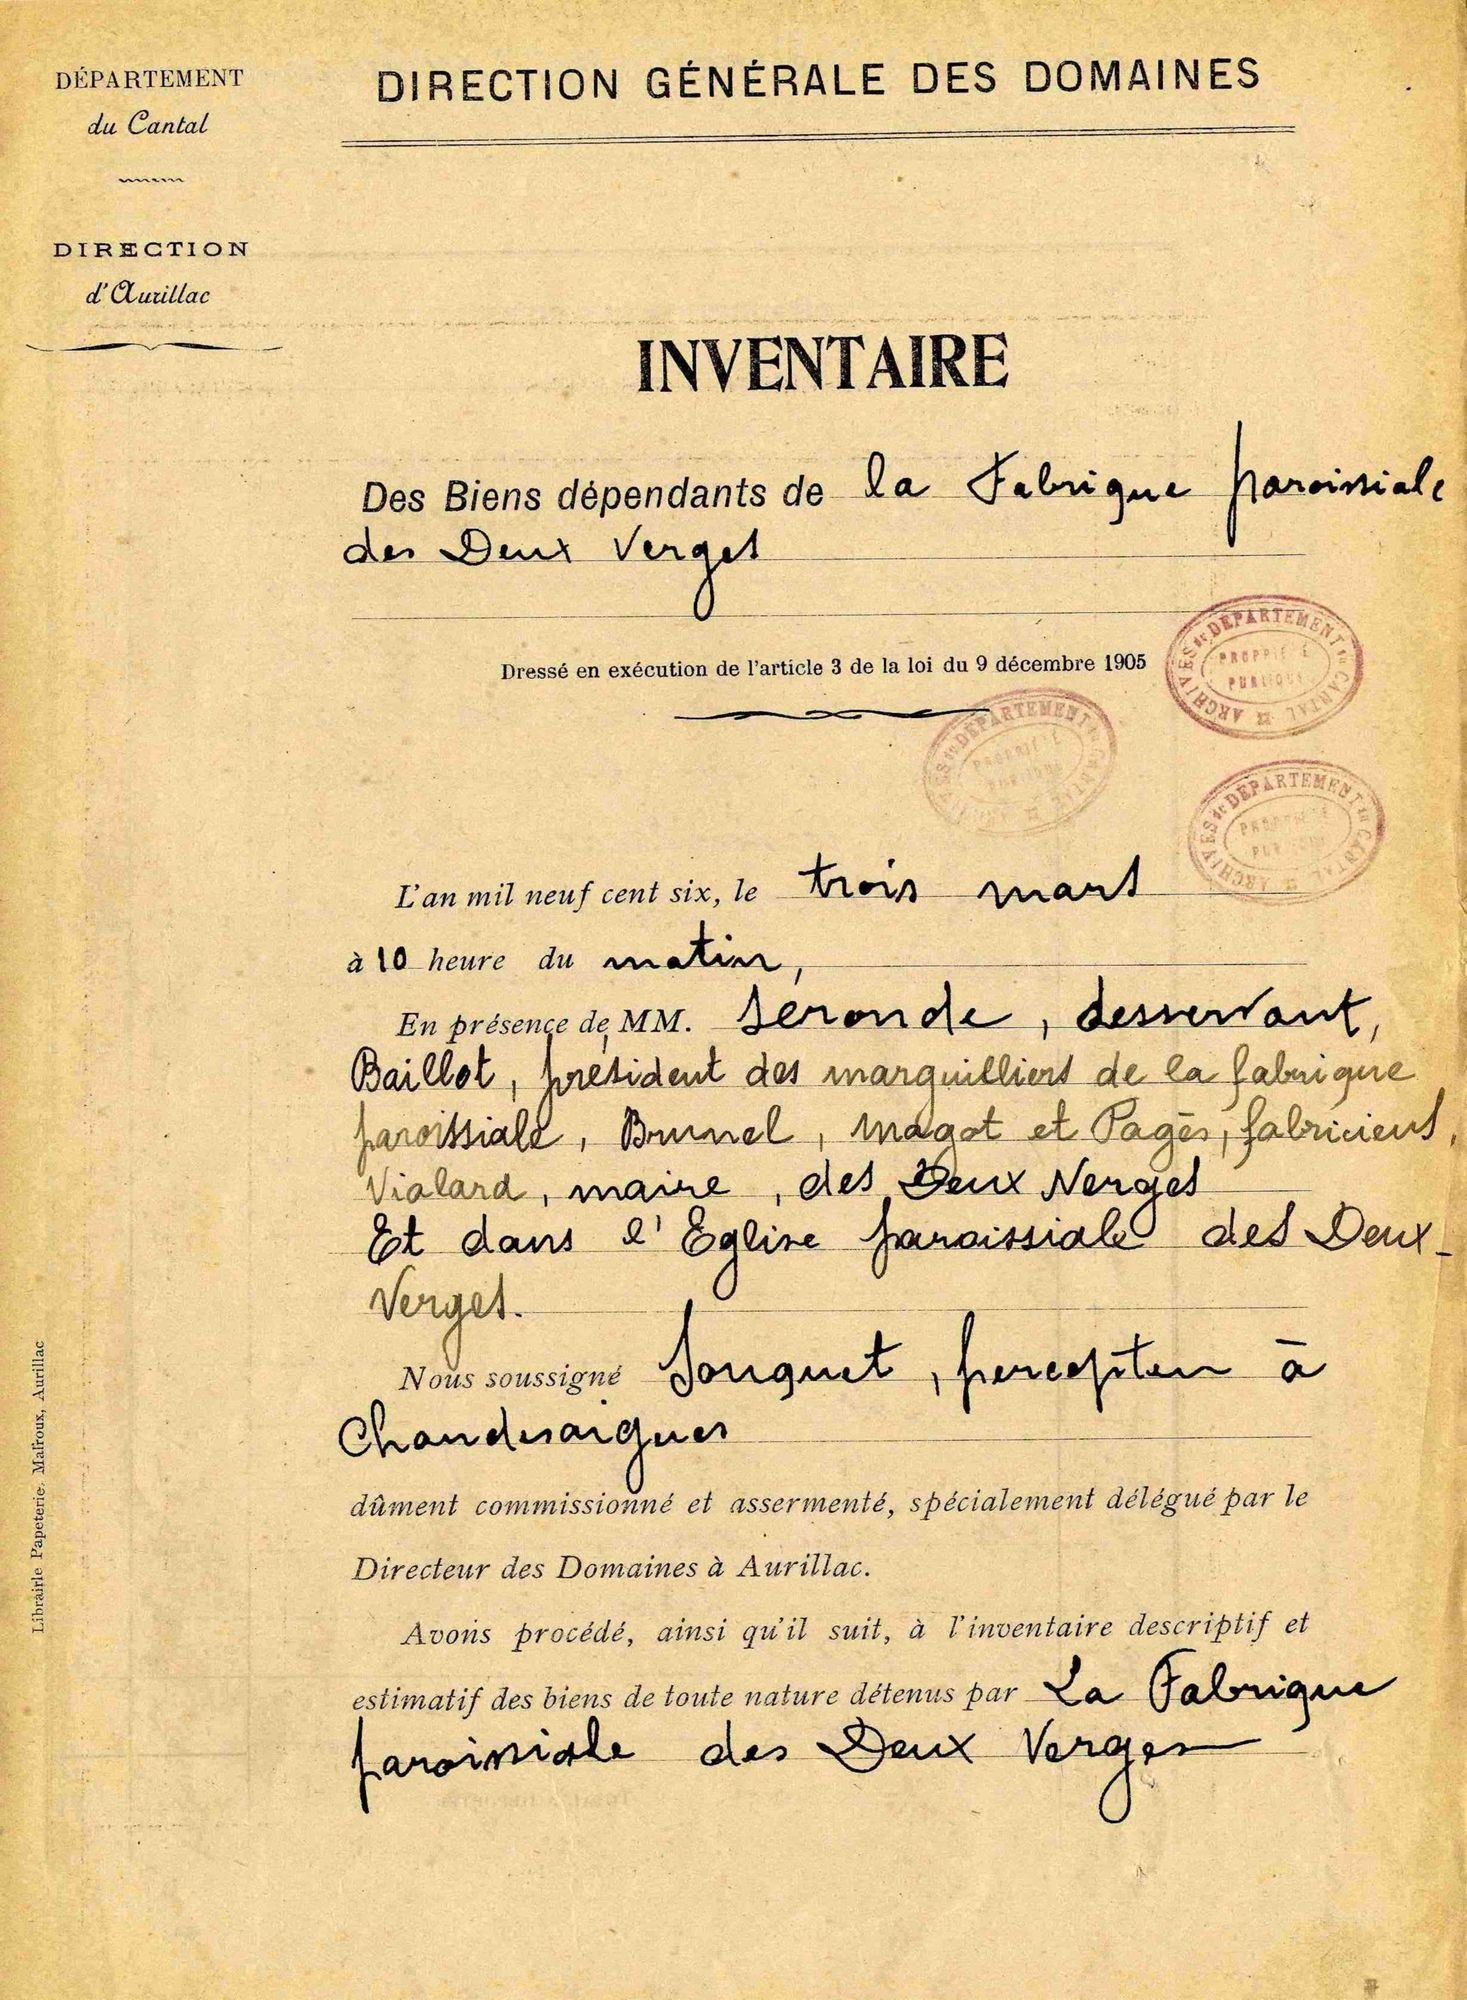 DÉPARTEMENT
du Cantal
DIRECTION
d'Aurillac
DIRECTION GÉNÉRALE DES DOMAINES
INVENTAIRE
Des Biens dépendants de la Fabrique paroissiale
des Deux Verges
Dressé en exécution de l'article 3 de la loi du 9 décembre 1905
ARCHIVES DÉPARTEMENT DU CANTAL
PROPRIÉTÉ
PUBLIQUE
ARCHIVES DÉPARTEMENT DU CANTAL
PROPRIÉTÉ
PUBLIQUE
ARCHIVES DÉPARTEMENT DU CANTAL
PROPRIÉTÉ
PUBLIQUE
L'an mil neuf cent six, le trois mars
à 10 heure du matin,
En présence de MM. Séronde, desservant,
Baillot, président des marguilliers de la fabrique
paroissiale, Brunel, Magot et Pagès, fabriciens,
Vialard, maire, des Deux Verges
Et dans l'Eglise paroissiale des Deux-
Verges.
Nous soussigné Souquet, percepteur à
Chaudesaigues
dûment commissionné et assermenté, spécialement délégué par le
Directeur des Domaines à Aurillac.
Avons procédé, ainsi qu'il suit, à l'inventaire descriptif et
estimatif des biens de toute nature détenus par La Fabrique
paroissiale des Deux Verges
Librairie Papeterie. Malroux, Aurillac